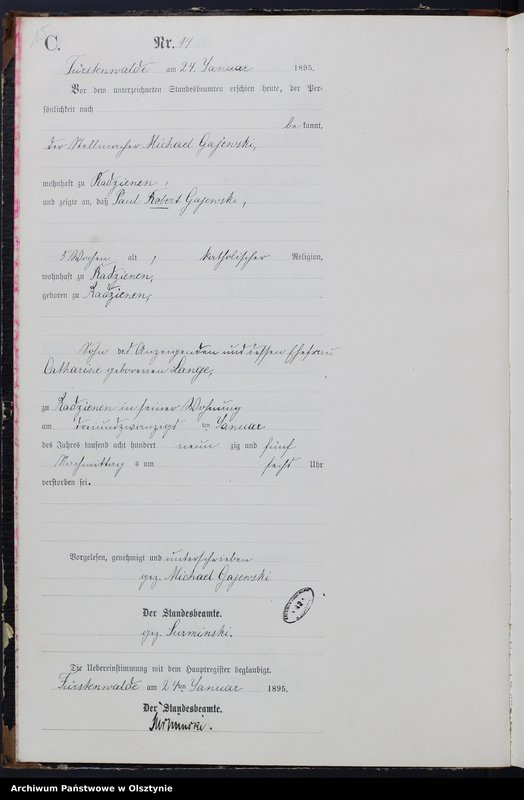 C.
Nr. 11
Fürstenwalde am 24. Januar 1895.
Vor dem unterzeichneten Standesbeamten erschien heute, der Per-
sönlichkeit nach
bekannt,
der Stellmacher Michael Gajewski,
wohnhaft zu Radzienen,
und zeigte an, daß Paul Robert Gajewski,
5 Wochen alt, katholischer Religion,
wohnhaft zu Radzienen,
geboren zu Radzienen,
Sohn des Anzeigenden und dessen Ehefrau
Catharine geborenen Lange,
zu Radzienen in seiner Wohnung
am dreiundzwanzigsten Januar
des Jahres tausend acht hundert neun zig und fünf
Nachmittags um sechs Uhr
verstorben sei.
Vorgelesen, genehmigt und unterschrieben
gez. Michael Gajewski
Der Standesbeamte.
gez. Surminski.
Die Uebereinstimmung mit dem Hauptregister beglaubigt.
Fürstenwalde am 24ten Januar 1895.
Der Standesbeamte.
Surminski.
Archiwum Państwowe w Olsztynie